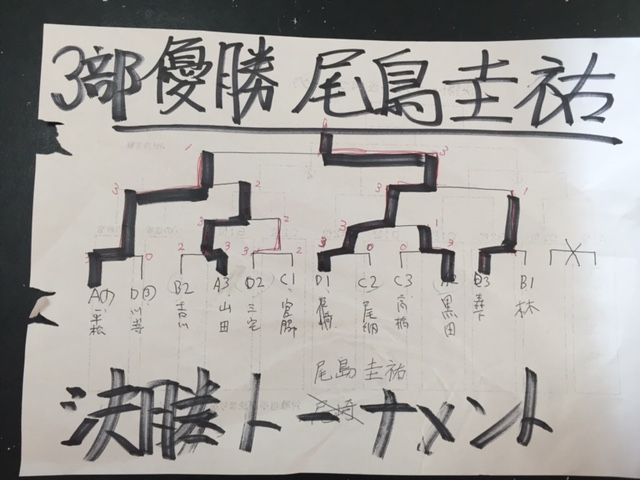 3部優勝 尾島圭祐
1 3
3 2 3 1
3 2 1
0 2 3 3 2 3 0 0 3
A① D④ B2 A3 D2 C1 D1 C2 C3 B3 B1
平松 吉川 山田 三宅 宮脇 尾畑 高橋 黒田 森下 林
尾島圭祐
尾崎
決勝トーナメント